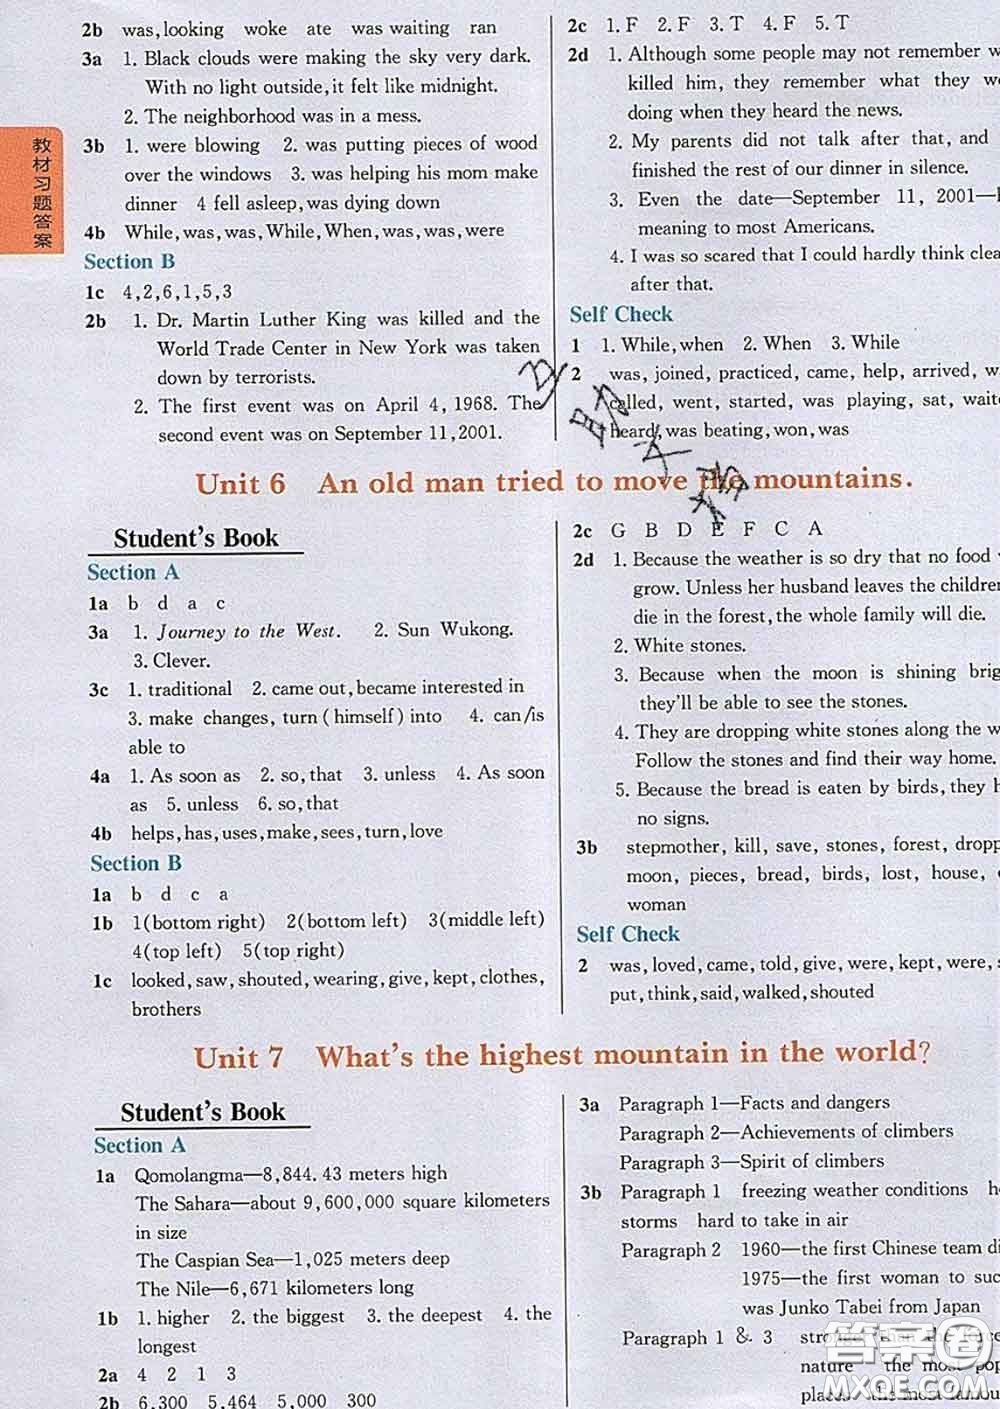 教材习题答案
2b was,looking woke ate was waiting ran
3a 1. Black clouds were making the sky very dark.
With no light outside,it felt like midnight.
2. The neighborhood was in a mess.
3b 1. were blowing 2. was putting pieces of wood
over the windows 3. was helping his mom make
dinner 4 fell asleep,was dying down
4b While,was,was,While,When,was,was,were
Section B
1c 4,2,6,1,5,3
2b 1. Dr. Martin Luther King was killed and the
World Trade Center in New York was taken
down by terrorists.
2. The first event was on April 4, 1968. The
second event was on September 11,2001.
2c 1. F 2. F 3. T 4. F 5. T
2d 1. Although some people may not remember
killed him, they remember what they
doing when they heard the news.
2. My parents did not talk after that, and
finished the rest of our dinner in silence.
3. Even the date—September 11, 2001—
meaning to most Americans.
4. I was so scared that I could hardly think
after that.
Self Check
1 1. While,when 2. When 3. While
2 was, joined, practiced, came, help, arrived,
called, went, started, was playing, sat,
heard,was beating,won,was
Unit 6 An old man tried to move the mountains.
Student's Book
Section A
1a b d a c
3a 1. Journey to the West. 2. Sun Wukong.
3. Clever.
3c 1. traditional 2. came out,became interested in
3. make changes, turn (himself) into 4. can/is
able to
4a 1. As soon as 2. so,that 3. unless 4. As soon
as 5. unless 6. so,that
4b helps,has,uses,make,sees,turn,love
Section B
1a b d c a
1b 1(bottom right) 2(bottom left) 3(middle left)
4(top left) 5(top right)
1c looked,saw,shouted,wearing,give,kept,clothes,
brothers
2c G B D E F C A
2d 1. Because the weather is so dry that no food
grow. Unless her husband leaves the children
die in the forest,the whole family will die.
2. White stones.
3. Because when the moon is shining
they'll be able to see the stones.
4. They are dropping white stones along the
Follow the stones and find their way home.
5. Because the bread is eaten by birds,they
no signs.
3b stepmother, kill, save, stones, forest,
moon, pieces, bread, birds, lost, house,
woman
Self Check
2 was, loved, came, told, give, were, kept, were,
put,think,said,walked,shouted
Unit 7 What's the highest mountain in the world?
Student's Book
Section A
1a Qomolangma—8,844.43 meters high
The Sahara—about 9,600,000 square kilometers
in size
The Caspian Sea—1,025 meters deep
The Nile—6,671 kilometers long
1b 1. higher 2. the biggest 3. the deepest 4. the
longest
2a 4 2 1 3
2b 6,300 5,464 5,000 300
3a Paragraph 1—Facts and dangers
Paragraph 2—Achievements of climbers
Paragraph 3—Spirit of climbers
3b Paragraph 1 freezing weather conditions
storms hard to take in air
Paragraph 2 1960—the first Chinese team
1975—the first woman to
was Junko Tabei from Japan
Paragraph 1 & 3 than the
nature the most
places the most famous
答案圈
MXQE.COM